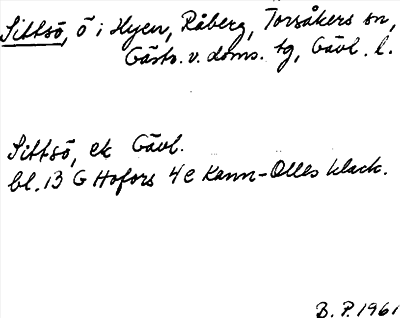 Sittsö, ö i Hyen, Råberg, Torsåkers sn,
Gästr. v. doms. tg, Gävl. l.
Sittsö, ek Gävl.
bl. 13 G Hofors 4 e Kann-Olles klack.
B. P. 1961